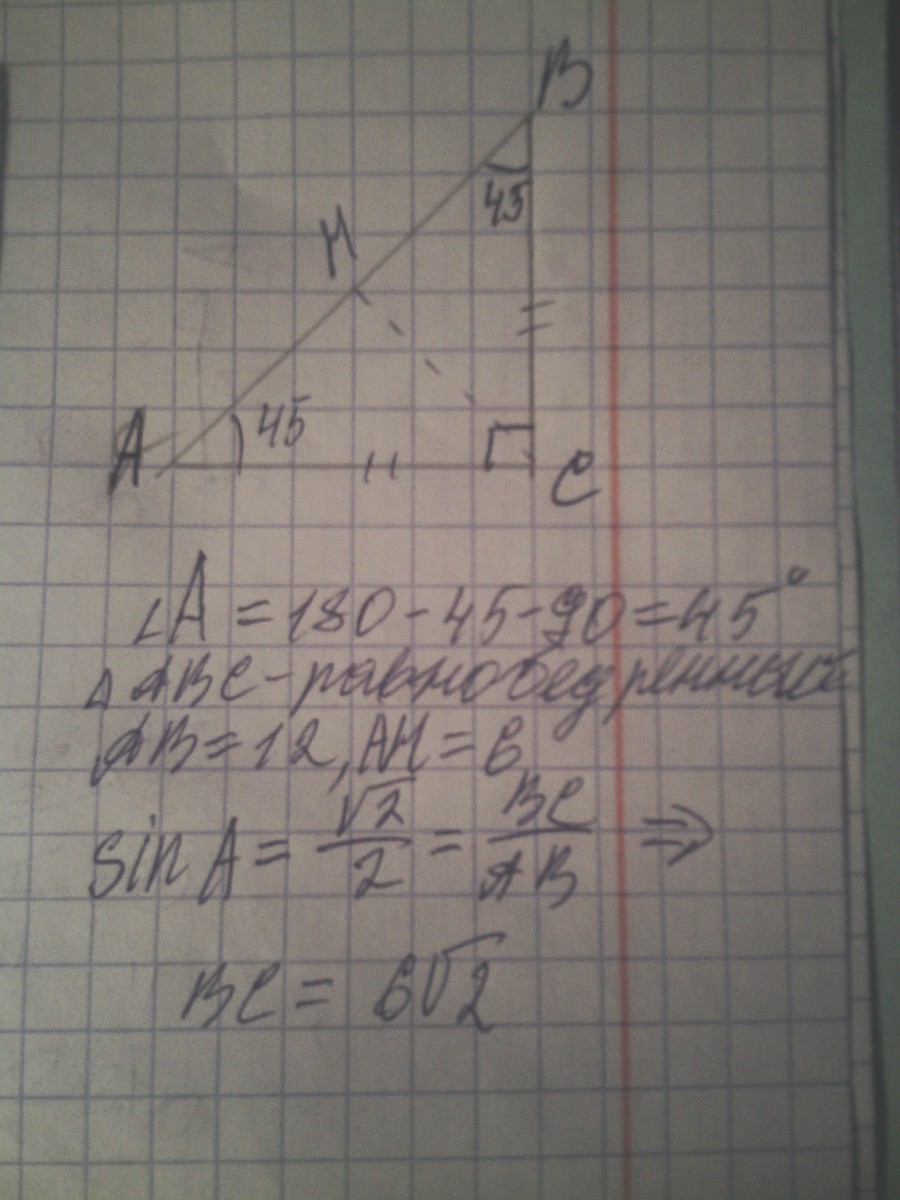 B
45
H
45
A
C
∠A = 180 - 45 - 90 = 45°
△ ABC - равнобедренный
AB = 12, AH = 6
sin A = √2/2 = BC/AB ⇒
BC = 6√2